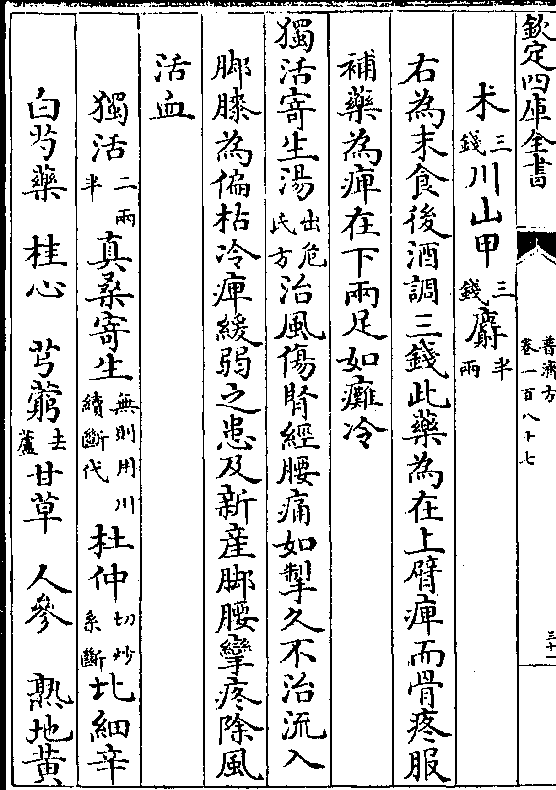 欽定四庫全書
普濟方
卷一百八十七
三十一
朮三錢川山甲三錢麝半兩
右為末食後酒調三錢此藥為在上臂痺而骨疼服
補藥為痺在下兩足如癱冷
獨活寄生湯出危氏方治風傷腎經腰痛如掣久不治流入
脚膝為偏枯冷痺緩弱之患及新産脚腰攣疼除風
活血
獨活二兩半真桑寄生無則用川續斷代杜仲切炒系斷北細辛
白芍藥 桂心 芎藭去蘆甘草 人參 熟地黄